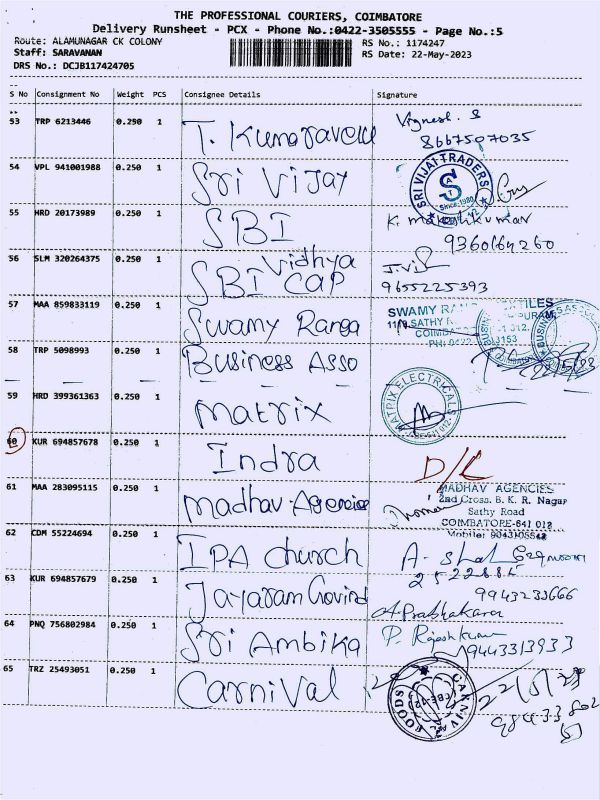 THE PROFESSIONAL COURIERS, COIMBATORE
Delivery Runsheet - PCX - Phone No.:0422-3505555 - Page No.:5
Route: ALAMUNAGAR CK COLONY RS No.: 1174247
Staff: SARAVANAN RS Date: 22-May-2023
DRS No.: DCJB117424705
S No Consignment No Weight PCS Consignee Details Signature
53 TRP 6213446 0.250 1 T. Kumaravelu Vignesh. S
8667507035
54 VPL 941001988 0.250 1 Sri Vijay SRI VIJAI TRADERS
Since.1980
55 HRD 20173989 0.250 1 SBI K. Maheshkumar
9360164260
56 SLM 320264375 0.250 1 SBI Vidhya CAP
9655225393
57 MAA 859833119 0.250 1 Swamy Ranga SWAMY
COIMBATORE
58 TRP 5098993 0.250 1 Business Asso
59 HRD 399361363 0.250 1 Matrix MATRIX ELECTRICALS
60 KUR 694857678 0.250 1 Indra D/L
61 MAA 283095115 0.250 1 Madhav Agencies MADHAV AGENCIES
2nd Cross. B. K. R. Nagar
Sathy Road
COIMBATORE-641 012
62 CDM 55224694 0.250 1 IPA Church
63 KUR 694857679 0.250 1 Jayaram Govind 9943233666
A. Prabhakaran
64 PNQ 756802984 0.250 1 Sri Ambika P. Rajeshkumar
9443313933
65 TRZ 25493051 0.250 1 Carnival CARNIVAL FOODS